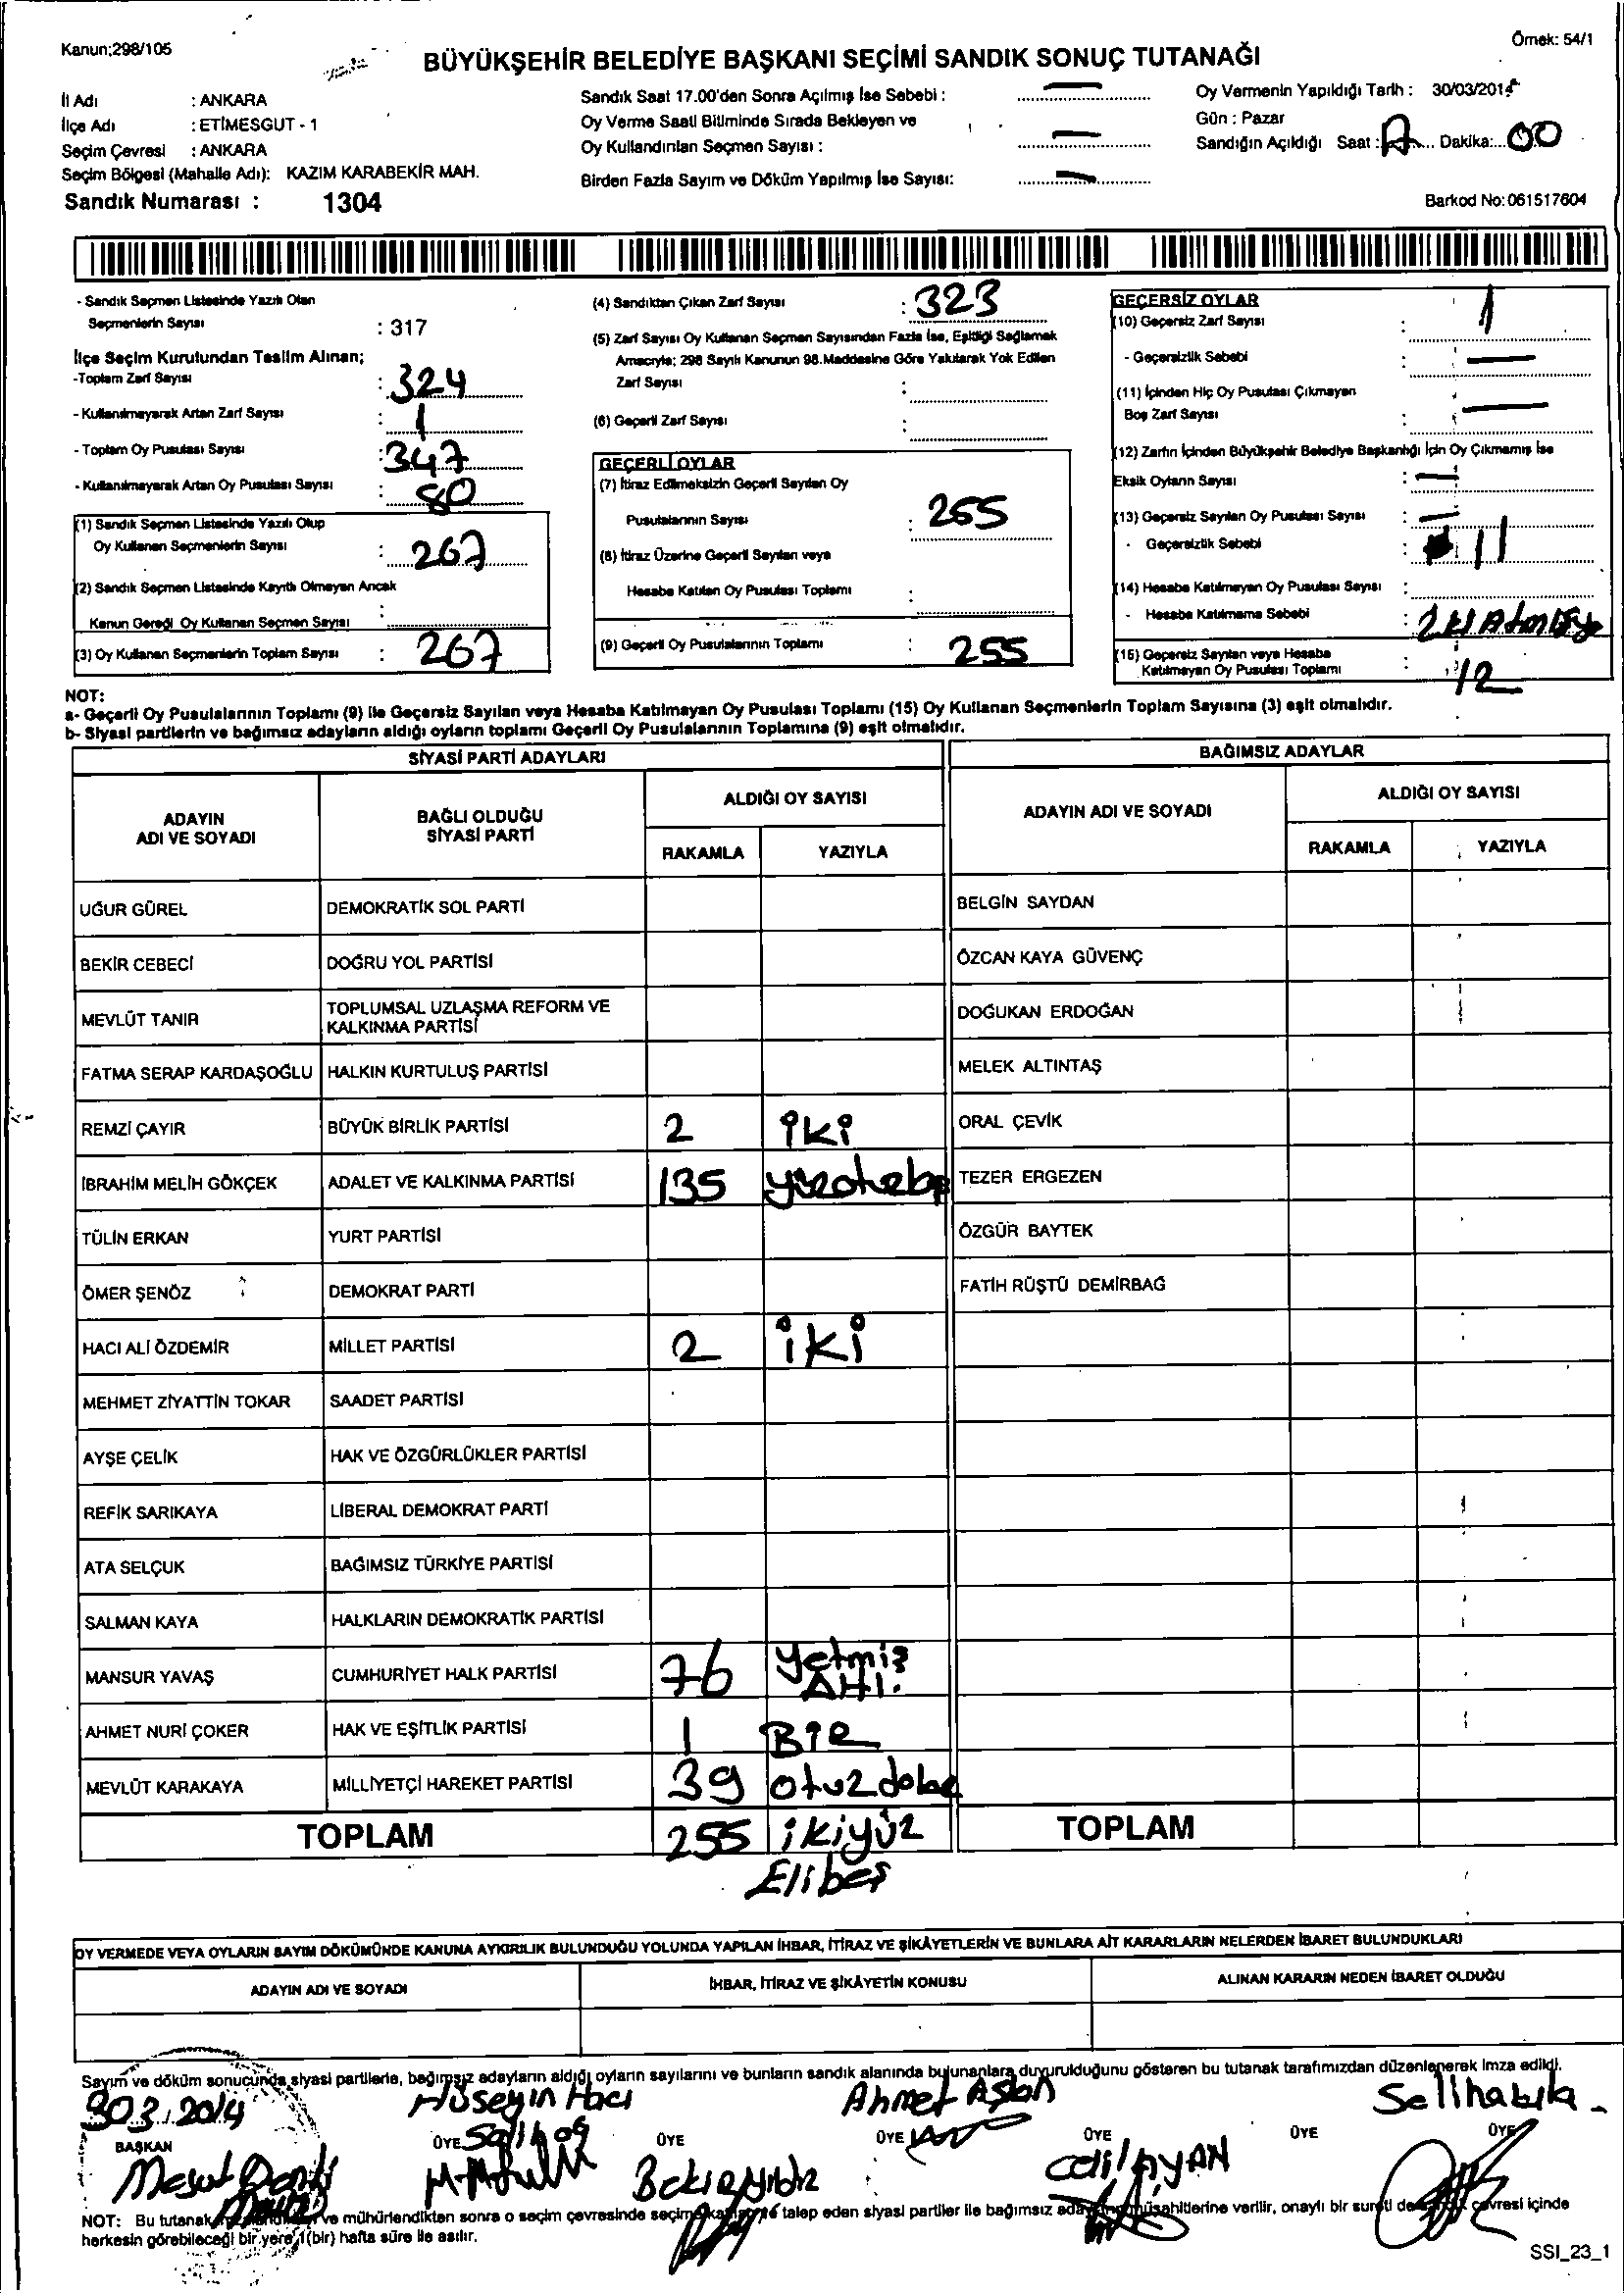 Kanun;298/105
Örnek: 54/1
BÜYÜKŞEHİR BELEDİYE BAŞKANI SEÇİMİ SANDIK SONUÇ TUTANAĞI
İl Adı : ANKARA
İlçe Adı : ETİMESGUT - 1
Seçim Çevresi : ANKARA
Seçim Bölgesi (Mahalle Adı): KAZIM KARABEKİR MAH.
Sandık Numarası : 1304
Sandık Saat 17.00'den Sonra Açılmış İse Sebebi : —
Oy Verme Saati Bitiminde Sırada Bekleyen ve
Oy Kullandırılan Seçmen Sayısı : —
Birden Fazla Sayım ve Döküm Yapılmış İse Sayısı: —
Oy Vermenin Yapıldığı Tarih : 30/03/2014
Gün : Pazar
Sandığın Açıldığı Saat : Dakika:...00
Barkod No:061517604
- Sandık Seçmen Listesinde Yazılı Olan
Seçmenlerin Sayısı : 317
İlçe Seçim Kurulundan Teslim Alınan;
-Toplam Zarf Sayısı : 324
- Kullanılmayarak Artan Zarf Sayısı : 1
- Toplam Oy Pusulası Sayısı : 347
- Kullanılmayarak Artan Oy Pusulası Sayısı : 80
(1) Sandık Seçmen Listesinde Yazılı Olup
Oy Kullanan Seçmenlerin Sayısı : 267
(2) Sandık Seçmen Listesinde Kayıtlı Olmayan Ancak
Kanun Gereği Oy Kullanan Seçmen Sayısı :
(3) Oy Kullanan Seçmenlerin Toplam Sayısı : 267
(4) Sandıktan Çıkan Zarf Sayısı : 323
(5) Zarf Sayısı Oy Kullanan Seçmen Sayısından Fazla İse, Eşitliği Sağlamak
Amacıyla; 298 Sayılı Kanunun 98.Maddesine Göre Yakılarak Yok Edilen
Zarf Sayısı :
(6) Geçerli Zarf Sayısı :
GEÇERLİ OYLAR
(7) İtiraz Edilmeksizin Geçerli Sayılan Oy
Pusulalarının Sayısı : 255
(8) İtiraz Üzerine Geçerli Sayılan veya
Hesaba Katılan Oy Pusulası Toplamı :
(9) Geçerli Oy Pusulalarının Toplamı : 255
GEÇERSİZ OYLAR
(10) Geçersiz Zarf Sayısı : 1
- Geçersizlik Sebebi : —
(11) İçinden Hiç Oy Pusulası Çıkmayan
Boş Zarf Sayısı : —
(12) Zarfın İçinden Büyükşehir Belediye Başkanlığı İçin Oy Çıkmamış İse
Eksik Oyların Sayısı : —
(13) Geçersiz Sayılan Oy Pusulası Sayısı : —
- Geçersizlik Sebebi : 11
(14) Hesaba Katılmayan Oy Pusulası Sayısı :
- Hesaba Katılmama Sebebi :
(15) Geçersiz Sayılan veya Hesaba
Katılmayan Oy Pusulası Toplamı : 12
NOT:
a- Geçerli Oy Pusulalarının Toplamı (9) ile Geçersiz Sayılan veya Hesaba Katılmayan Oy Pusulası Toplamı (15) Oy Kullanan Seçmenlerin Toplam Sayısına (3) eşit olmalıdır.
b- Siyasi partilerin ve bağımsız adayların aldığı oyların toplamı Geçerli Oy Pusulalarının Toplamına (9) eşit olmalıdır.
SİYASİ PARTİ ADAYLARI BAĞIMSIZ ADAYLAR
ADAYIN ADI VE SOYADI BAĞLI OLDUĞU SİYASİ PARTİ ALDIĞI OY SAYISI ADAYIN ADI VE SOYADI ALDIĞI OY SAYISI
RAKAMLA YAZIYLA RAKAMLA YAZIYLA
UĞUR GÜREL DEMOKRATİK SOL PARTİ BELGİN SAYDAN
BEKİR CEBECİ DOĞRU YOL PARTİSİ ÖZCAN KAYA GÜVENÇ
MEVLÜT TANIR TOPLUMSAL UZLAŞMA REFORM VE KALKINMA PARTİSİ DOĞUKAN ERDOĞAN
FATMA SERAP KARDAŞOĞLU HALKIN KURTULUŞ PARTİSİ MELEK ALTINTAŞ
REMZİ ÇAYIR BÜYÜK BİRLİK PARTİSİ 2 iki ORAL ÇEVİK
İBRAHİM MELİH GÖKÇEK ADALET VE KALKINMA PARTİSİ 135 TEZER ERGEZEN
TÜLİN ERKAN YURT PARTİSİ ÖZGÜR BAYTEK
ÖMER ŞENÖZ DEMOKRAT PARTİ FATİH RÜŞTÜ DEMİRBAĞ
HACI ALİ ÖZDEMİR MİLLET PARTİSİ 2 iki
MEHMET ZİYATTİN TOKAR SAADET PARTİSİ
AYŞE ÇELİK HAK VE ÖZGÜRLÜKLER PARTİSİ
REFİK SARIKAYA LİBERAL DEMOKRAT PARTİ
ATA SELÇUK BAĞIMSIZ TÜRKİYE PARTİSİ
SALMAN KAYA HALKLARIN DEMOKRATİK PARTİSİ
MANSUR YAVAŞ CUMHURİYET HALK PARTİSİ 76 Yetmiş Altı.
AHMET NURİ ÇOKER HAK VE EŞİTLİK PARTİSİ 1 BİR
MEVLÜT KARAKAYA MİLLİYETÇİ HAREKET PARTİSİ 39
TOPLAM 255 ikiyüz TOPLAM
Elibeş
OY VERMEDE VEYA OYLARIN SAYIM DÖKÜMÜNDE KANUNA AYKIRILIK BULUNDUĞU YOLUNDA YAPILAN İHBAR, İTİRAZ VE ŞİKÂYETLERİN VE BUNLARA AİT KARARLARIN NELERDEN İBARET BULUNDUKLARI
ADAYIN ADI VE SOYADI İHBAR, İTİRAZ VE ŞİKÂYETİN KONUSU ALINAN KARARIN NEDEN İBARET OLDUĞU
Sayım ve döküm sonucunda siyasi partilerle, bağımsız adayların aldığı oyların sayılarını ve bunların sandık alanında bulunanlara duyurulduğunu gösteren bu tutanak tarafımızdan düzenlenerek imza edildi.
Hüseyin Hacı Ahmet Aslan
BAŞKAN ÜYE ÜYE ÜYE ÜYE ÜYE ÜYE
Mesut AYAN
NOT: Bu tutanak ve mühürlendikten sonra o seçim çevresinde seçime talep eden siyasi partiler ile bağımsız müşahitlerine verilir, onaylı bir sureti de çevresi içinde
herkesin görebileceği bir yere 1(bir) hafta süre ile asılır.
SSI_23_1